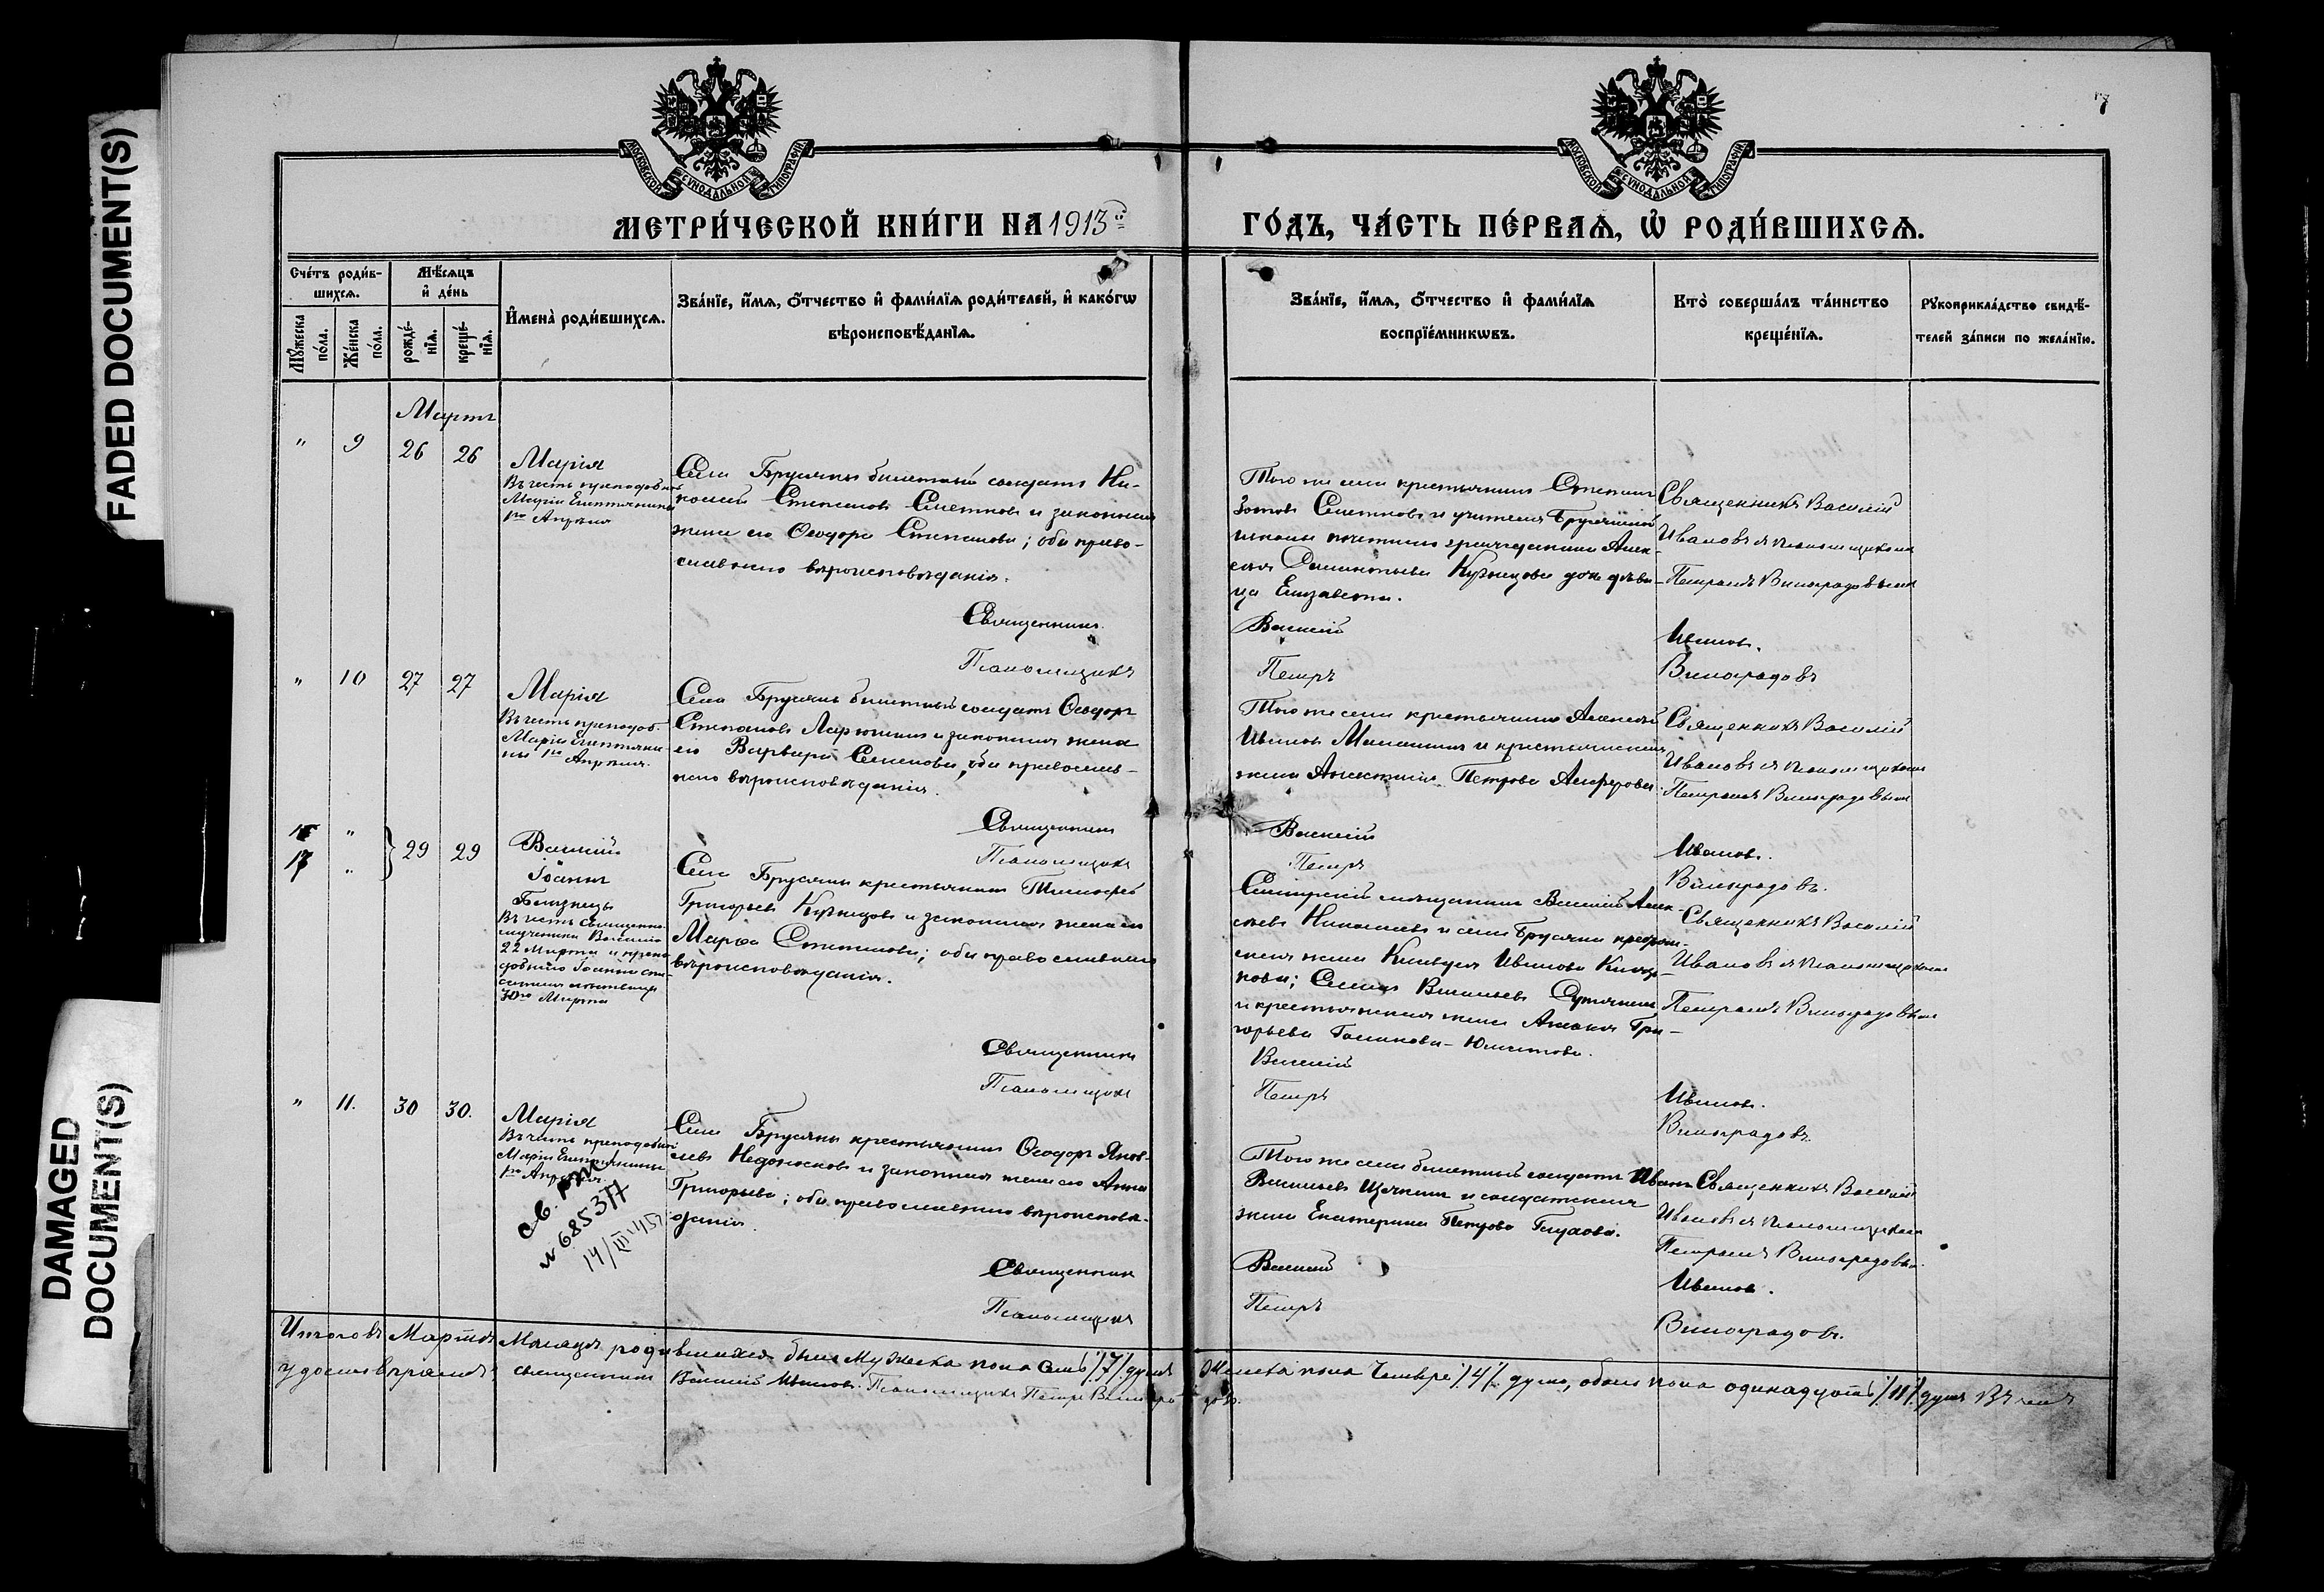 FADED DOCUMENT(S)
DAMAGED
DOCUMENT(S)
7
МОСКОВСКОЙ СѴНОДАЛЬНОЙ ТИПОГРАФІИ
МОСКОВСКОЙ СѴНОДАЛЬНОЙ ТИПОГРАФІИ
МЕТРИ́ЧЕСКОЙ КНИ́ГИ НА 1913й ГО́ДЪ, ЧА́СТЬ ПЕ́РВАѦ, Ѡ҆ РОДИ́ВШИХСѦ.
Сче́тъ роди́в-
шихсѧ.
Мꙋ́жеска
по́ла.
Же́нска
по́ла.
Мѣ́сѧцъ
и҆ де́нь
рожде́-
нїѧ.
креще́-
нїѧ.
И҆мена̀ роди́вшихсѧ.
Зва́нїе, и҆́мѧ, ѻ҆́тчество и҆ фами́лїѧ роди́телей, и҆ како́гѡ
вѣроисповѣ́данїѧ.
Зва́нїе, и҆́мѧ, ѻ҆́тчество и҆ фами́лїѧ
воспрїе́мникѡвъ.
Кто̀ соверша́лъ та́инство
креще́нїѧ.
Рꙋкоприкла́дство свидѣ́-
телей за́писи по жела́нїю.
Мартъ
" 9 26 26
Марія
Въ честь преподобной
Маріи Египтянины
1го Апрѣля
Села Брусяны билетный солдатъ Ни-
колай Степановъ Сметновъ и законная
жена его Ѳеодора Степанова; оба право-
славнаго вѣроисповѣданія.
Священникъ
Псаломщикъ
Того же села крестьянинъ Степанъ
Зотовъ Сметновъ и учителя Брусянской
школы почетнаго гражданина Алек-
сѣя Дементьева Кузнецова дочь дѣви-
ца Елизавета.
Василій
Петръ
Священникъ Василій
Ивановъ съ псаломщикомъ
Петромъ Виноградовымъ
Ивановъ.
Виноградовъ
" 10 27 27
Марія
Въ честь преподоб.
Маріи Египтяни-
ны 1го Апрѣля.
Села Брусянъ билетный солдатъ Ѳеодоръ
Степановъ Ларюшинъ и законная жена
его Варвара Семенова, оба православ-
наго вѣроисповѣданія.
Священникъ
Псаломщикъ
Того же села крестьянинъ Алексѣй
Ивановъ и крестьянская
жена Анастасія Петрова Алферова.
Василій
Петръ
Священникъ Василій
Ивановъ съ псаломщикомъ
Петромъ Виноградовымъ
Ивановъ.
Виноградовъ.
" 29 29
17 "
Василій
Іоаннъ
Близнецы
Въ честь Священно-
мученика Василія
22 Марта и препо-
добнаго Іоанна спи-
сателя лѣствицы
30го Марта
Села Брусяны крестьянинъ Тимофей
Григорьевъ Кузнецовъ и законная жена его
Марѳа Степанова; оба православнаго
вѣроисповѣданія.
Священникъ
Псаломщикъ
мѣщанинъ Василій Алек-
сѣевъ Николаевъ и села Брусяны
жена Клавдія Иванова
Васильевъ
и крестьянская жена Григорьева
Василій
Петръ
Священникъ Василій
Ивановъ съ псаломщикомъ
Петромъ Виноградовымъ
Ивановъ.
Виноградовъ.
" 11. 30 30.
Марія
Въ честь преподобной
Маріи Египтянины
1го Апрѣля.
св.
№ 685377
14/III 45
Села Брусяны крестьянинъ Ѳеодоръ Яков-
левъ Недоносковъ и законная жена его Анна
Григорьева; оба православнаго вѣроисповѣ-
данія.
Священникъ
Псаломщикъ
Того же села билетный солдатъ Иванъ
Васильевъ и солдатская
жена Екатерина Петрова Глухова.
Василій
Петръ
Священникъ Василій
Ивановъ съ псаломщикомъ
Петромъ Виноградовымъ.
Ивановъ.
Виноградовъ.
Итого въ Мартѣ Мѣсяцѣ родившихся было Мужеска пола семь /7/ душъ Женска пола Четыре /4/ души, обоего пола одинадцать /11/ душъ Въ чемъ
удостовѣряемъ: священникъ Василій Ивановъ. Псаломщикъ Петръ Виноградовъ.